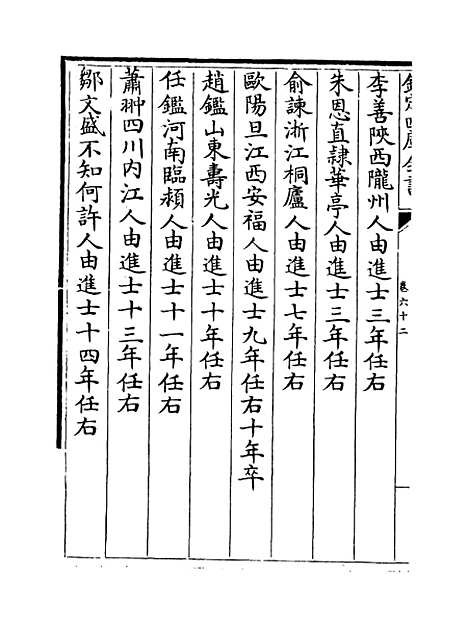 欽定四庫全書
卷六十二
李善陝西隴州人由進士三年任右
朱恩直隸華亭人由進士三年任右
俞諫浙江桐廬人由進士七年任右
歐陽旦江西安福人由進士九年任右十年卒
趙鑑山東壽光人由進士十年任右
任鑑河南臨潁人由進士十一年任右
蕭翀四川內江人由進士十三年任右
鄒文盛不知何許人由進士十四年任右